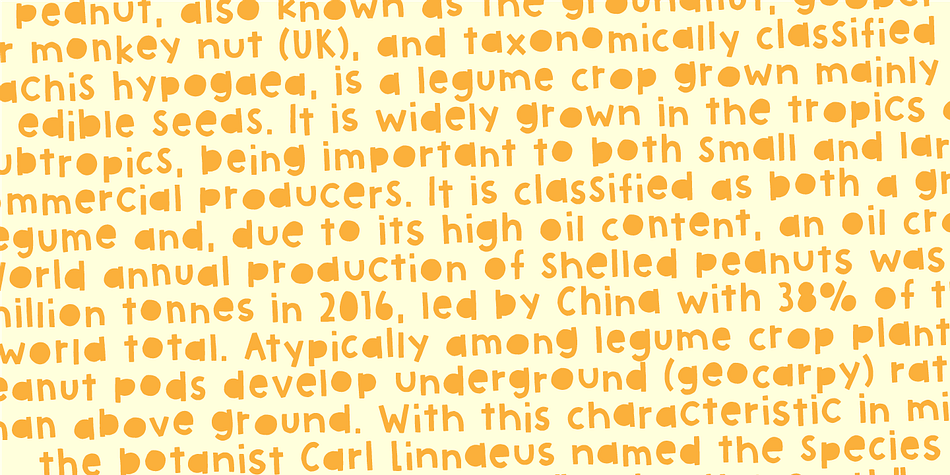 peanut, also known as the groundnut, goober
r monkey nut (UK), and taxonomically classified
achis hypogaea, is a legume crop grown mainly
edible seeds. It is widely grown in the tropics
ubtropics, being important to both small and lar
ommercial producers. It is classified as both a gr
egume and, due to its high oil content, an oil cro
World annual production of shelled peanuts was
million tonnes in 2016, led by China with 38% of t
world total. Atypically among legume crop plant
eanut pods develop underground (geocarpy) rat
han above ground. With this characteristic in mi
the botanist Carl Linnaeus named the species